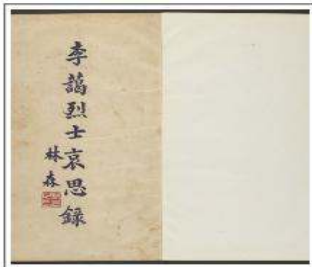 李藹烈士哀思錄
林森